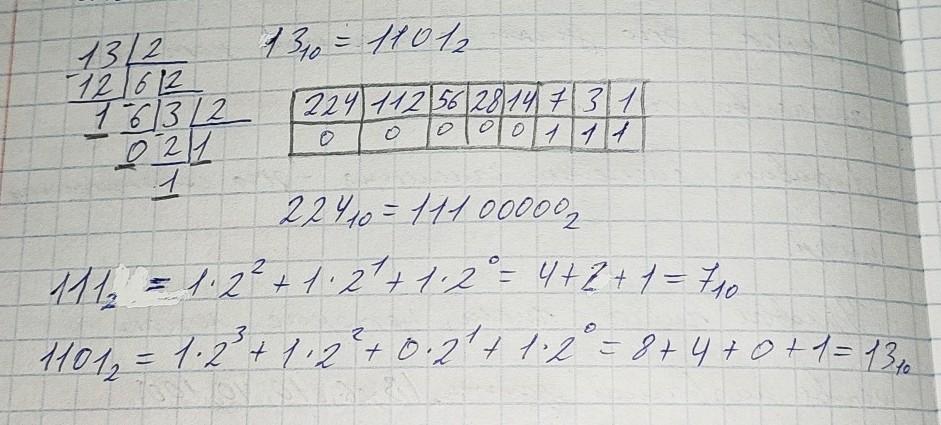 13 2 13₁₀ = 1101₂
-12 6 2
1 -6 3 2
0 2 1
1
224 112 56 28 14 7 3 1
0 0 0 0 0 1 1 1
224₁₀ = 11100000₂
111₂ = 1·2² + 1·2¹ + 1·2⁰ = 4+2+1 = 7₁₀
1101₂ = 1·2³ + 1·2² + 0·2¹ + 1·2⁰ = 8+4+0+1 = 13₁₀